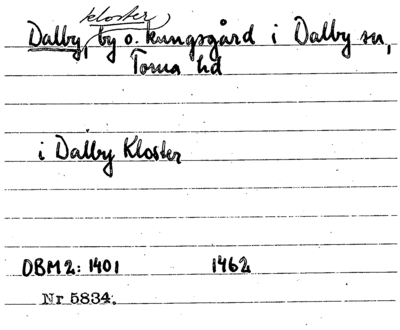 kloster,
Dalby, by o. kungsgård i Dalby sn,
Torna hd
i Dalby Kloster
DBM2: 1401 1462
Nr 5834.